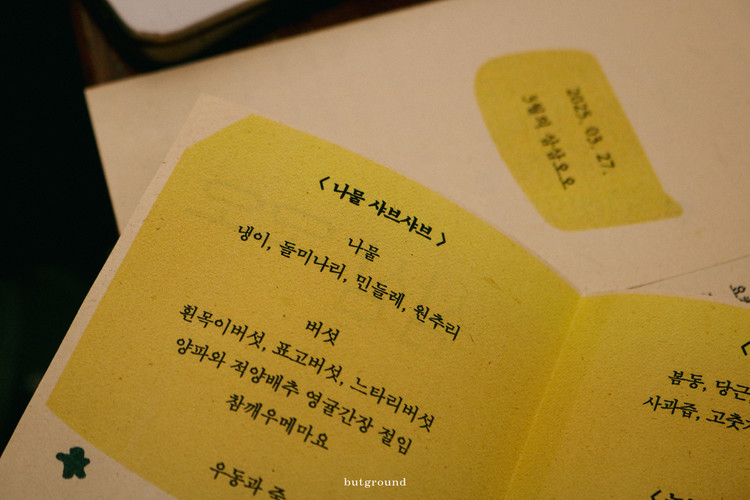 2025. 03. 27.
3월의 삼삼오오
< 나물 샤브샤브 >
나물
냉이, 돌미나리, 민들레, 원추리
버섯
흰목이버섯, 표고버섯, 느타리버섯
양파와 적양배추 영귤간장 절임
참깨우메마요
우동과 죽
봄동, 당근,
사과즙, 고춧가
butground